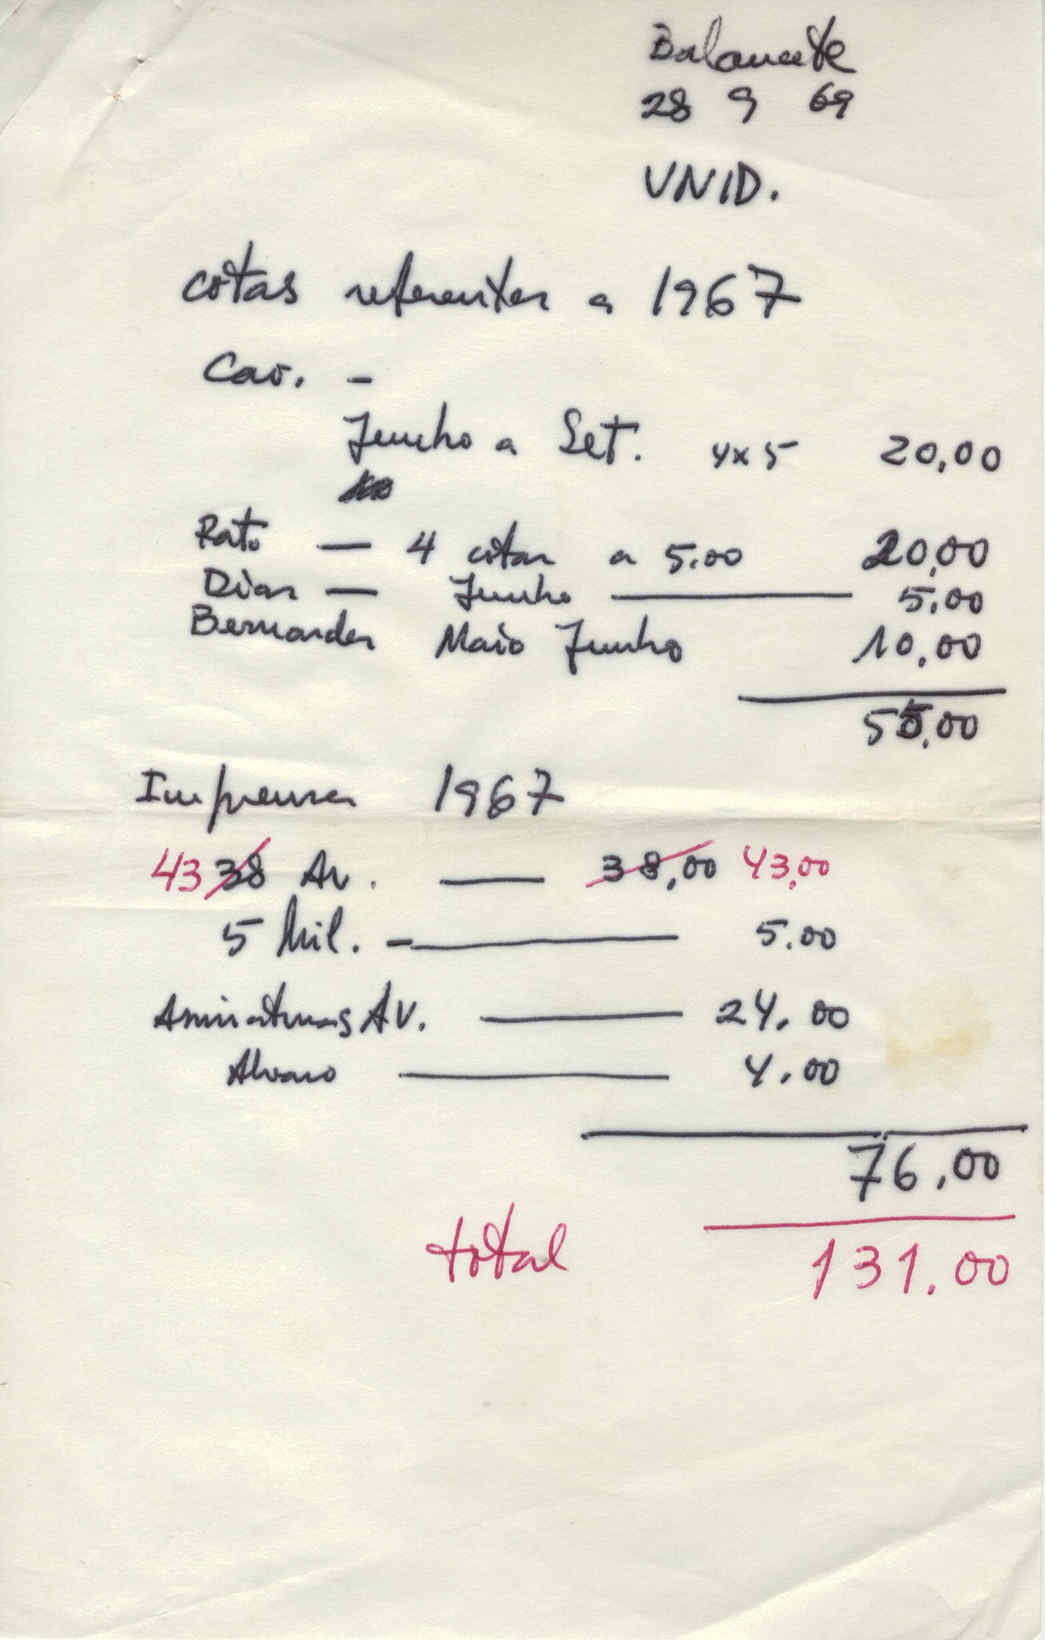 Balancete
28 9 69
UNID.
cotas referentes a 1967
Cav. -
Junho a Set. 4x5 20,00
Rato — 4 cotas a 5.00 20,00
Dias — Junho — 5,00
Bernardes Maio Junho 10,00
55,00
Imprensa 1967
43 38 Av. — 38,00 43,00
5 Mil. — 5.00
Assinaturas AV. — 24.00
Alvaro — 4.00
76,00
total 131.00